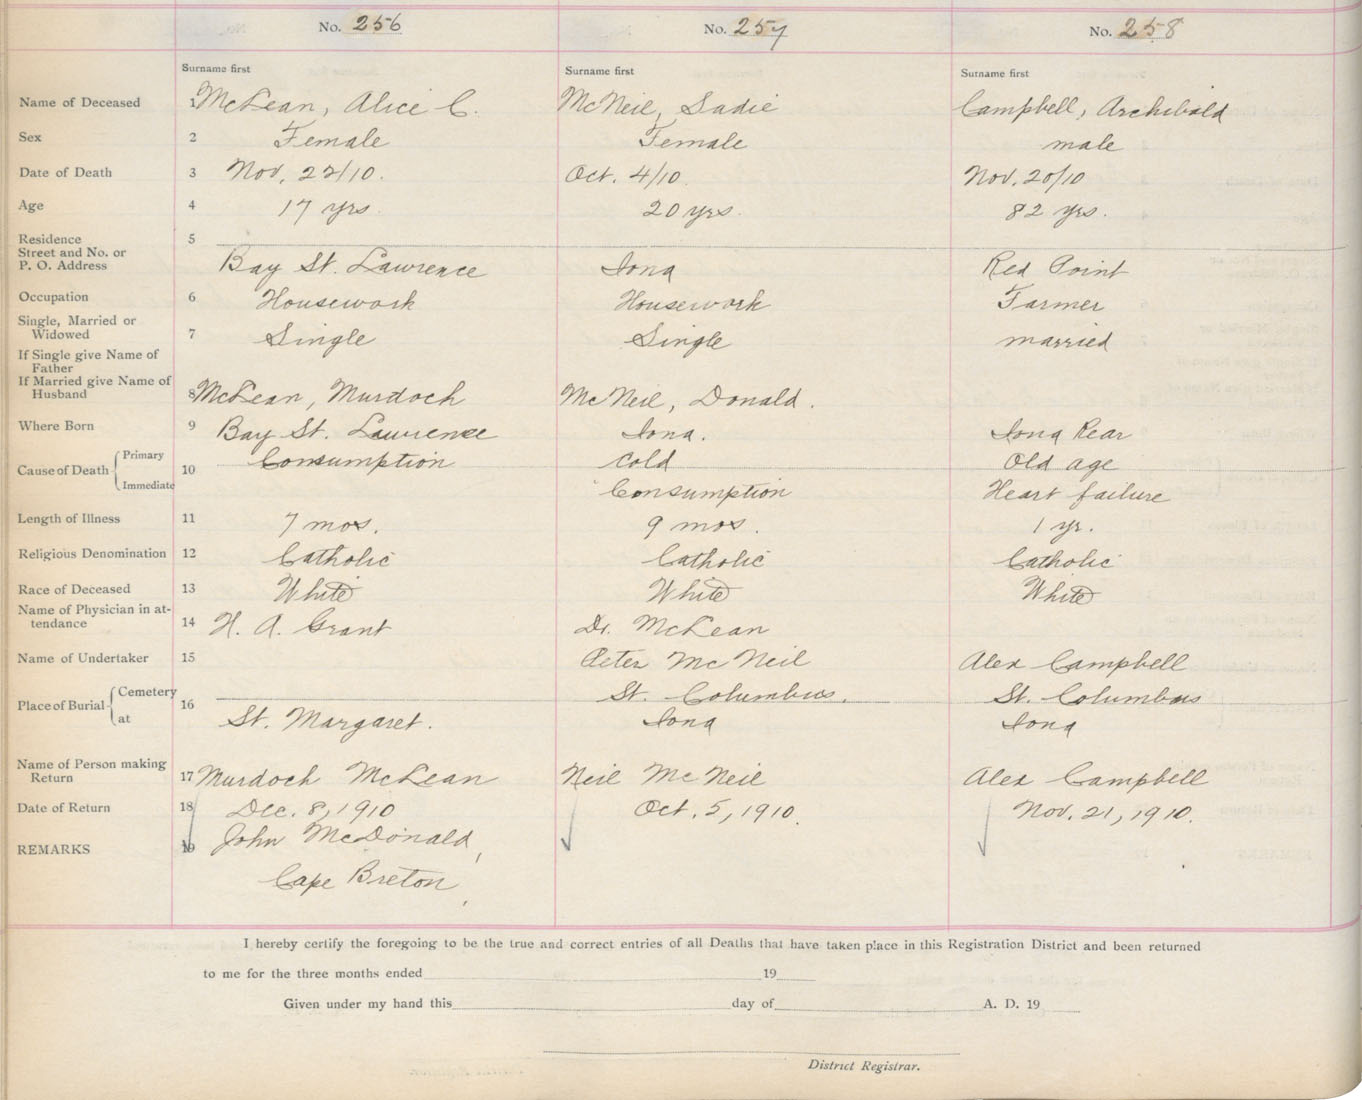 No. 256 No. 257 No. 258
Surname first Surname first Surname first
Name of Deceased 1 McLean, Alice C. McNeil, Sadie Campbell, Archibald
Sex 2 Female Female male
Date of Death 3 Nov. 22/10. Oct. 4/10 Nov. 20/10
Age 4 17 yrs. 20 yrs. 82 yrs.
Residence 5
Street and No. or
P. O. Address Bay St. Lawrence Iona Red Point
Occupation 6 Housework Housework Farmer
Single, Married or
Widowed 7 Single Single married
If Single give Name of
Father
If Married give Name of
Husband 8 McLean, Murdoch McNeil, Donald.
Where Born 9 Bay St. Lawrence Iona. Iona Rear
Cause of Death Primary 10 Consumption Cold Old age
Immediate Consumption Heart failure
Length of Illness 11 7 mos. 9 mos. 1 yr.
Religious Denomination 12 Catholic Catholic Catholic
Race of Deceased 13 White White White
Name of Physician in at-
tendance 14 H. A. Grant Dr. McLean
Name of Undertaker 15 Peter McNeil Alex Campbell
Place of Burial Cemetery 16 St. Columbus. St. Columbus
at St. Margaret. Iona Iona
Name of Person making
Return 17 Murdoch McLean Neil McNeil Alex Campbell
Date of Return 18 Dec. 8, 1910 Oct. 5, 1910. Nov. 21, 1910.
REMARKS 19 John McDonald,
Cape Breton,
I hereby certify the foregoing to be the true and correct entries of all Deaths that have taken place in this Registration District and been returned
to me for the three months ended 19
Given under my hand this day of A. D. 19
District Registrar.